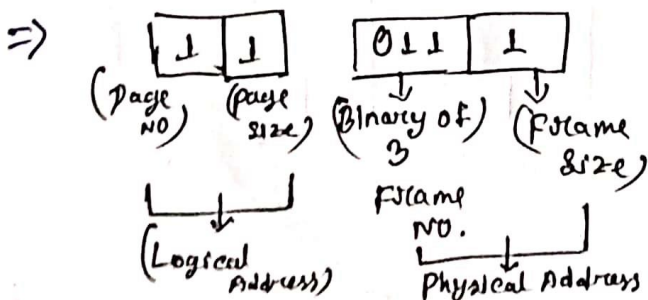 => 1 1 011 1
(Page NO) (Page Size) (Binary of 3) (Frame Size)
Frame NO.
(Logical Address) Physical Address